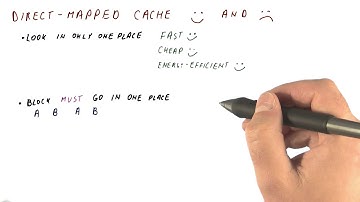 DIRECT-MAPPED CACHE AND
• LOOK IN ONLY ONE PLACE FAST
CHEAP
ENERGY-EFFICIENT
• BLOCK MUST GO IN ONE PLACE
A B A B